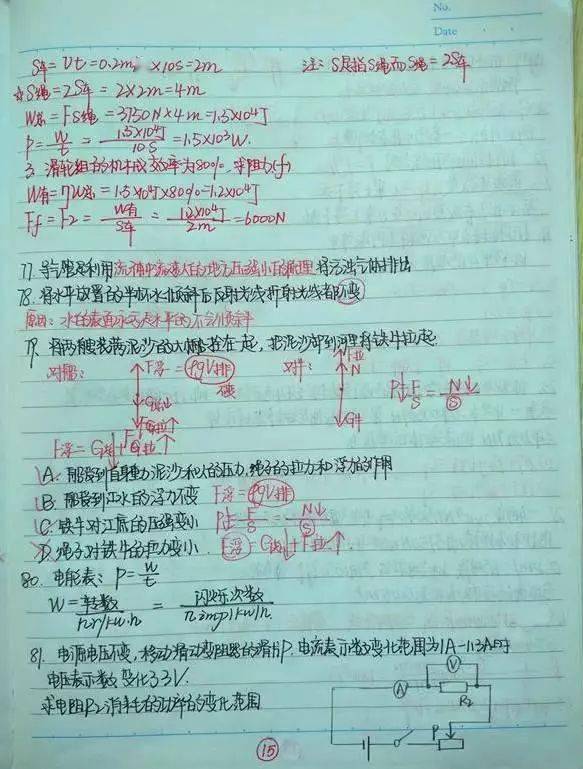 No.
Date
S车=Vt=0.2m/s ×10s=2m 注: S是指S绳而S绳=2S车
☆S绳=2S车=2×2m=4m
W总=FS绳=3750N×4m=1.5×10⁴J
P=W/t=1.5×10⁴J/10S=1.5×10³W.
3. 滑轮组的机械效率为80%. 求阻力(f)
W有=ηW总=1.5×10⁴J×80%=1.2×10⁴J
Ff=F2=W有/S车=1.2×10⁴J/2m=6000N
77. 导气 是利用流体中流速大的地方压强小的原理 将 气体排出
78. 将水平放置的半杯水倾斜后反射光线折射光线都不变
原因: 水的表面永远是水平的不会倾斜
79. 将两艘装满泥沙的大船拴在一起, 把泥沙卸到河里将铁牛拉起.
对船: F浮=ρgV排 不变 对牛: F拉 N P↓=F/S=N↓/S
G沙↓ F拉↑ G牛
F浮=G沙↓+F拉↑
A. 船受到自身重力泥沙和人的压力, 绳子的拉力和浮力的作用
B. 船受到江水的浮力不变 F浮=ρgV排
C. 铁牛对江底的压强变小 P↓=F/S=N↓/S
D. 绳子对铁牛的拉力变小. F浮=G沙↓+F拉↑.
80. 电能表: P=W/t
W=转数/nr/kw·h=闪烁次数/nimp/kw/h.
81. 电源电压不变, 移动滑动变阻器的滑片P. 电流表示数变化范围为1A-1.3A时
电压表示数变化3.3V.
求电阻R2消耗的功率的变化范围
V
A R2
P
15